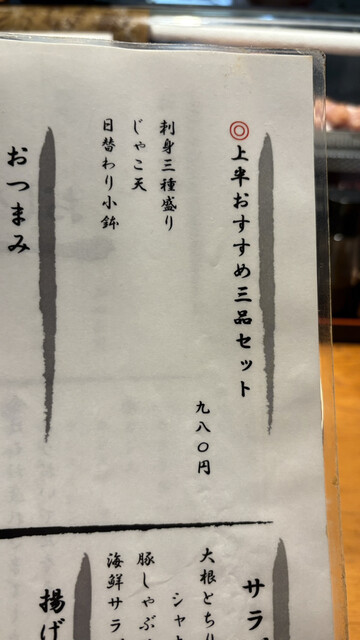 ◎上半おすすめ三品セット
九八〇円
刺身三種盛り
じゃこ天
日替わり小鉢
おつまみ
サラ
大根とちり
シャト
豚しゃぶ
海鮮サラ
揚げ